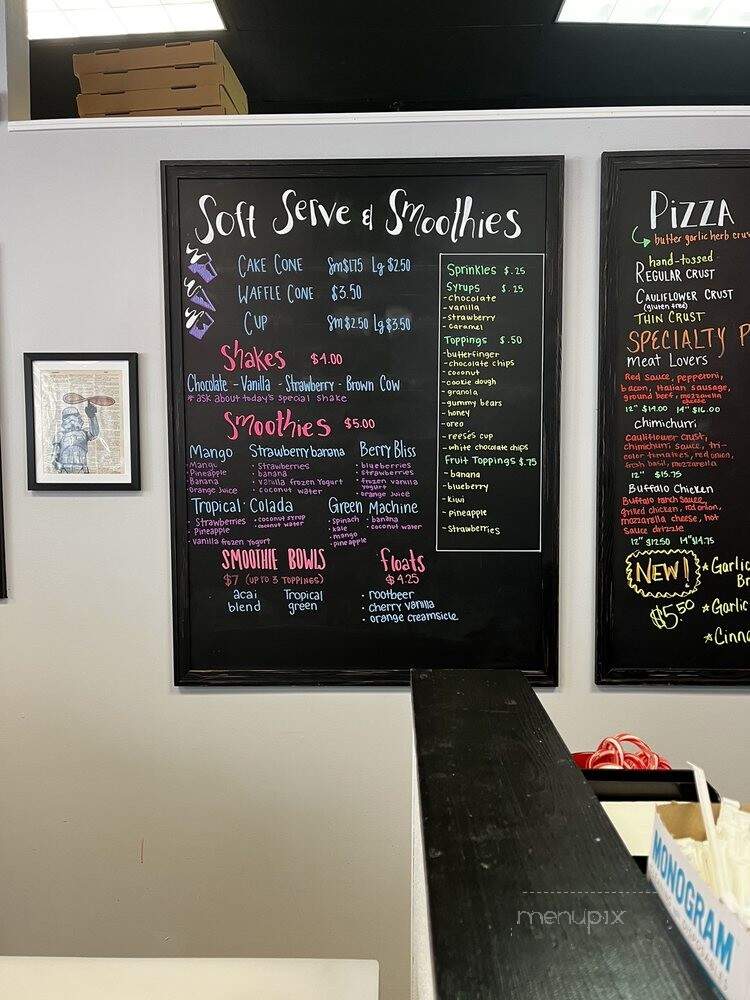 Soft Serve & Smoothies
CAKE CONE Sm$1.75 Lg $2.50
WAFFLE CONE $3.50
CUP Sm $2.50 Lg $3.50
Shakes $4.00
Chocolate - Vanilla - Strawberry - Brown Cow
* ask about today's special shake
Smoothies $5.00
Mango
Mango
Pineapple
Banana
orange Juice
Strawberry banana
· Strawberries
· banana
· vanilla frozen Yogurt
· coconut water
Berry Bliss
· blueberries
· strawberries
· frozen vanilla
yogurt
· orange Juice
Tropical · Colada
· Strawberries
· Pineapple
· vanilla frozen Yogurt
· coconut syrup
· coconut water
Green Machine
· Spinach
· kale
· mango
· pineapple
· banana
· coconut water
SMOOTHIE BOWLS
$7 (UP TO 3 TOPPINGS)
acai
blend
Tropical
green
floats
$4.25
· rootbeer
· cherry vanilla
· orange creamsicle
Sprinkles $.25
Syrups $.25
- chocolate
- vanilla
- strawberry
- caramel
Toppings $.50
- butterfinger
- chocolate chips
- coconut
- cookie dough
- granola
- gummy bears
- honey
- oreo
- reese's cup
- white chocolate chips
Fruit Toppings $.75
- banana
- blueberry
- kiwi
- pineapple
- strawberries
PIZZA
butter garlic herb crus
hand-tossed
REGULAR CRUST
CAULIFLOWER CRUST
(gluten free)
THIN CRUST
SPECIALTY P
Meat Lovers
Red Sauce, pepperoni,
bacon, Italian sausage,
ground beef, mozzarella
cheese
12" $14.00 14" $16.00
Chimichurri
Cauliflower Crust,
chimichurri sauce, tri-
color tomatoes, red onion,
fresh basil, mozzarella
12" $15.75
Buffalo Chicken
Buffalo ranch sauce,
grilled chicken, red onion,
mozzarella cheese, hot
sauce drizzle
12" $12.50 14" $14.75
NEW!
$5.50
* Garlic
Br
* Garlic
* Cinna
MONOGRAM
menupix